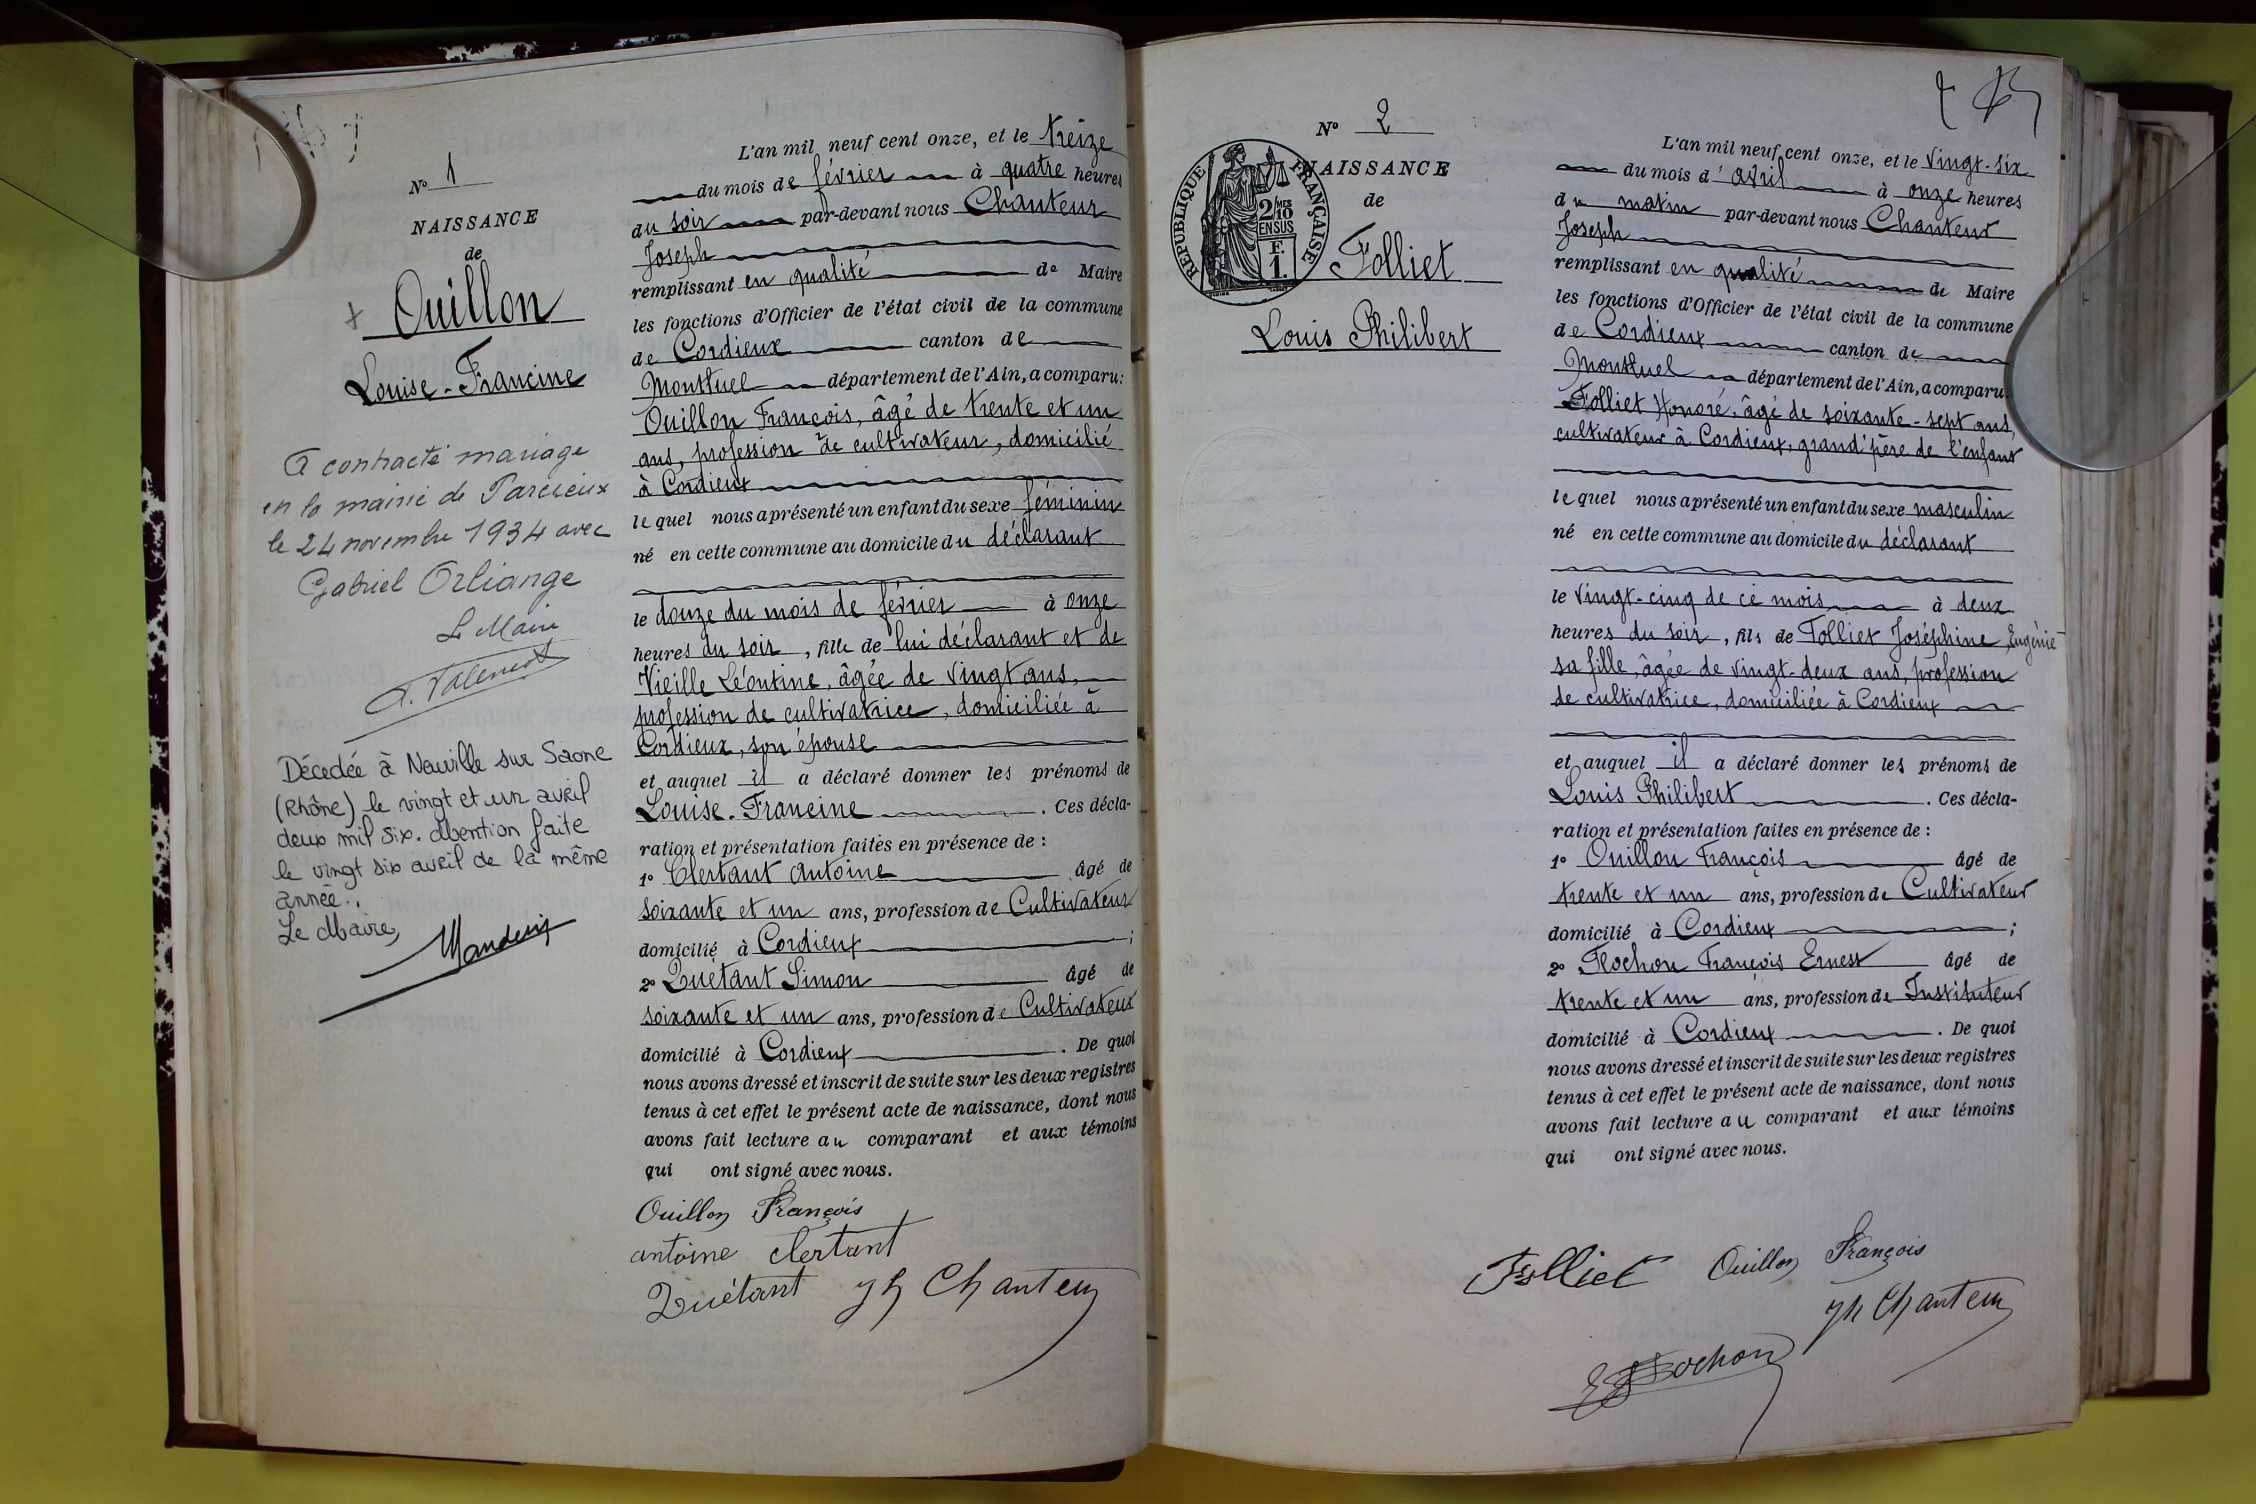 N° 1
NAISSANCE
de
Ouillon
Louise-Francine
A contracté mariage
en la mairie de Parcieux
le 24 novembre 1934 avec
Gabriel Orliange
Le Maire
Décedée à Neuville sur Saone
(Rhône) le vingt et un avril
deux mil six. Mention faite
le vingt six avril de la même
année.
Le Maire,
L'an mil neuf cent onze, et le treize
du mois de février à quatre heures
du soir par-devant nous Chanteur
Joseph
remplissant en qualité de Maire
les fonctions d'Officier de l'état civil de la commune
de Cordieux canton de
Montluel département de l'Ain, a comparu:
Ouillon François, âgé de trente et un
ans, profession de cultivateur, domicilié
à Cordieux
lequel nous a présenté un enfant du sexe féminin
né en cette commune au domicile du déclarant
le douze du mois de février à onze
heures du soir, fille de lui déclarant et de
Vieille Léontine, âgée de vingt ans,
profession de cultivatrice, domiciliée à
Cordieux, son épouse
et auquel il a déclaré donner les prénoms de
Louise-Francine. Ces décla-
ration et présentation faites en présence de :
1° Clertant Antoine âgé de
soixante et un ans, profession de Cultivateur
domicilié à Cordieux ;
2° Quétant Simon âgé de
soixante et un ans, profession de Cultivateur
domicilié à Cordieux. De quoi
nous avons dressé et inscrit de suite sur les deux registres
tenus à cet effet le présent acte de naissance, dont nous
avons fait lecture au comparant et aux témoins
qui ont signé avec nous.
Ouillon François
antoine Clertant
Quétant Jh Chanteur
N° 2
NAISSANCE
de
RÉPUBLIQUE FRANÇAISE
2/10 MES
EN SUS
F.
1.
Folliet
Louis Philibert
L'an mil neuf cent onze, et le vingt-six
du mois d'avril à onze heures
du matin par-devant nous Chanteur
Joseph
remplissant en qualité de Maire
les fonctions d'Officier de l'état civil de la commune
de Cordieux canton de
Montluel département de l'Ain, a comparu
Folliet Honoré, âgé de soixante-sept ans,
cultivateur à Cordieux, grand'père de l'enfant
lequel nous a présenté un enfant du sexe masculin
né en cette commune au domicile du déclarant
le vingt-cinq de ce mois à deux
heures du soir, fils de Folliet Joséphine, Eugénie
sa fille, âgée de vingt-deux ans, profession
de cultivatrice, domiciliée à Cordieux
et auquel il a déclaré donner les prénoms de
Louis Philibert. Ces décla-
ration et présentation faites en présence de :
1° Ouillon François âgé de
trente et un ans, profession de Cultivateur
domicilié à Cordieux ;
2° Rochon François Ernest âgé de
trente et un ans, profession de Instituteur
domicilié à Cordieux. De quoi
nous avons dressé et inscrit de suite sur les deux registres
tenus à cet effet le présent acte de naissance, dont nous
avons fait lecture au comparant et aux témoins
qui ont signé avec nous.
Folliet Ouillon François
Jh Chanteur
Rochon